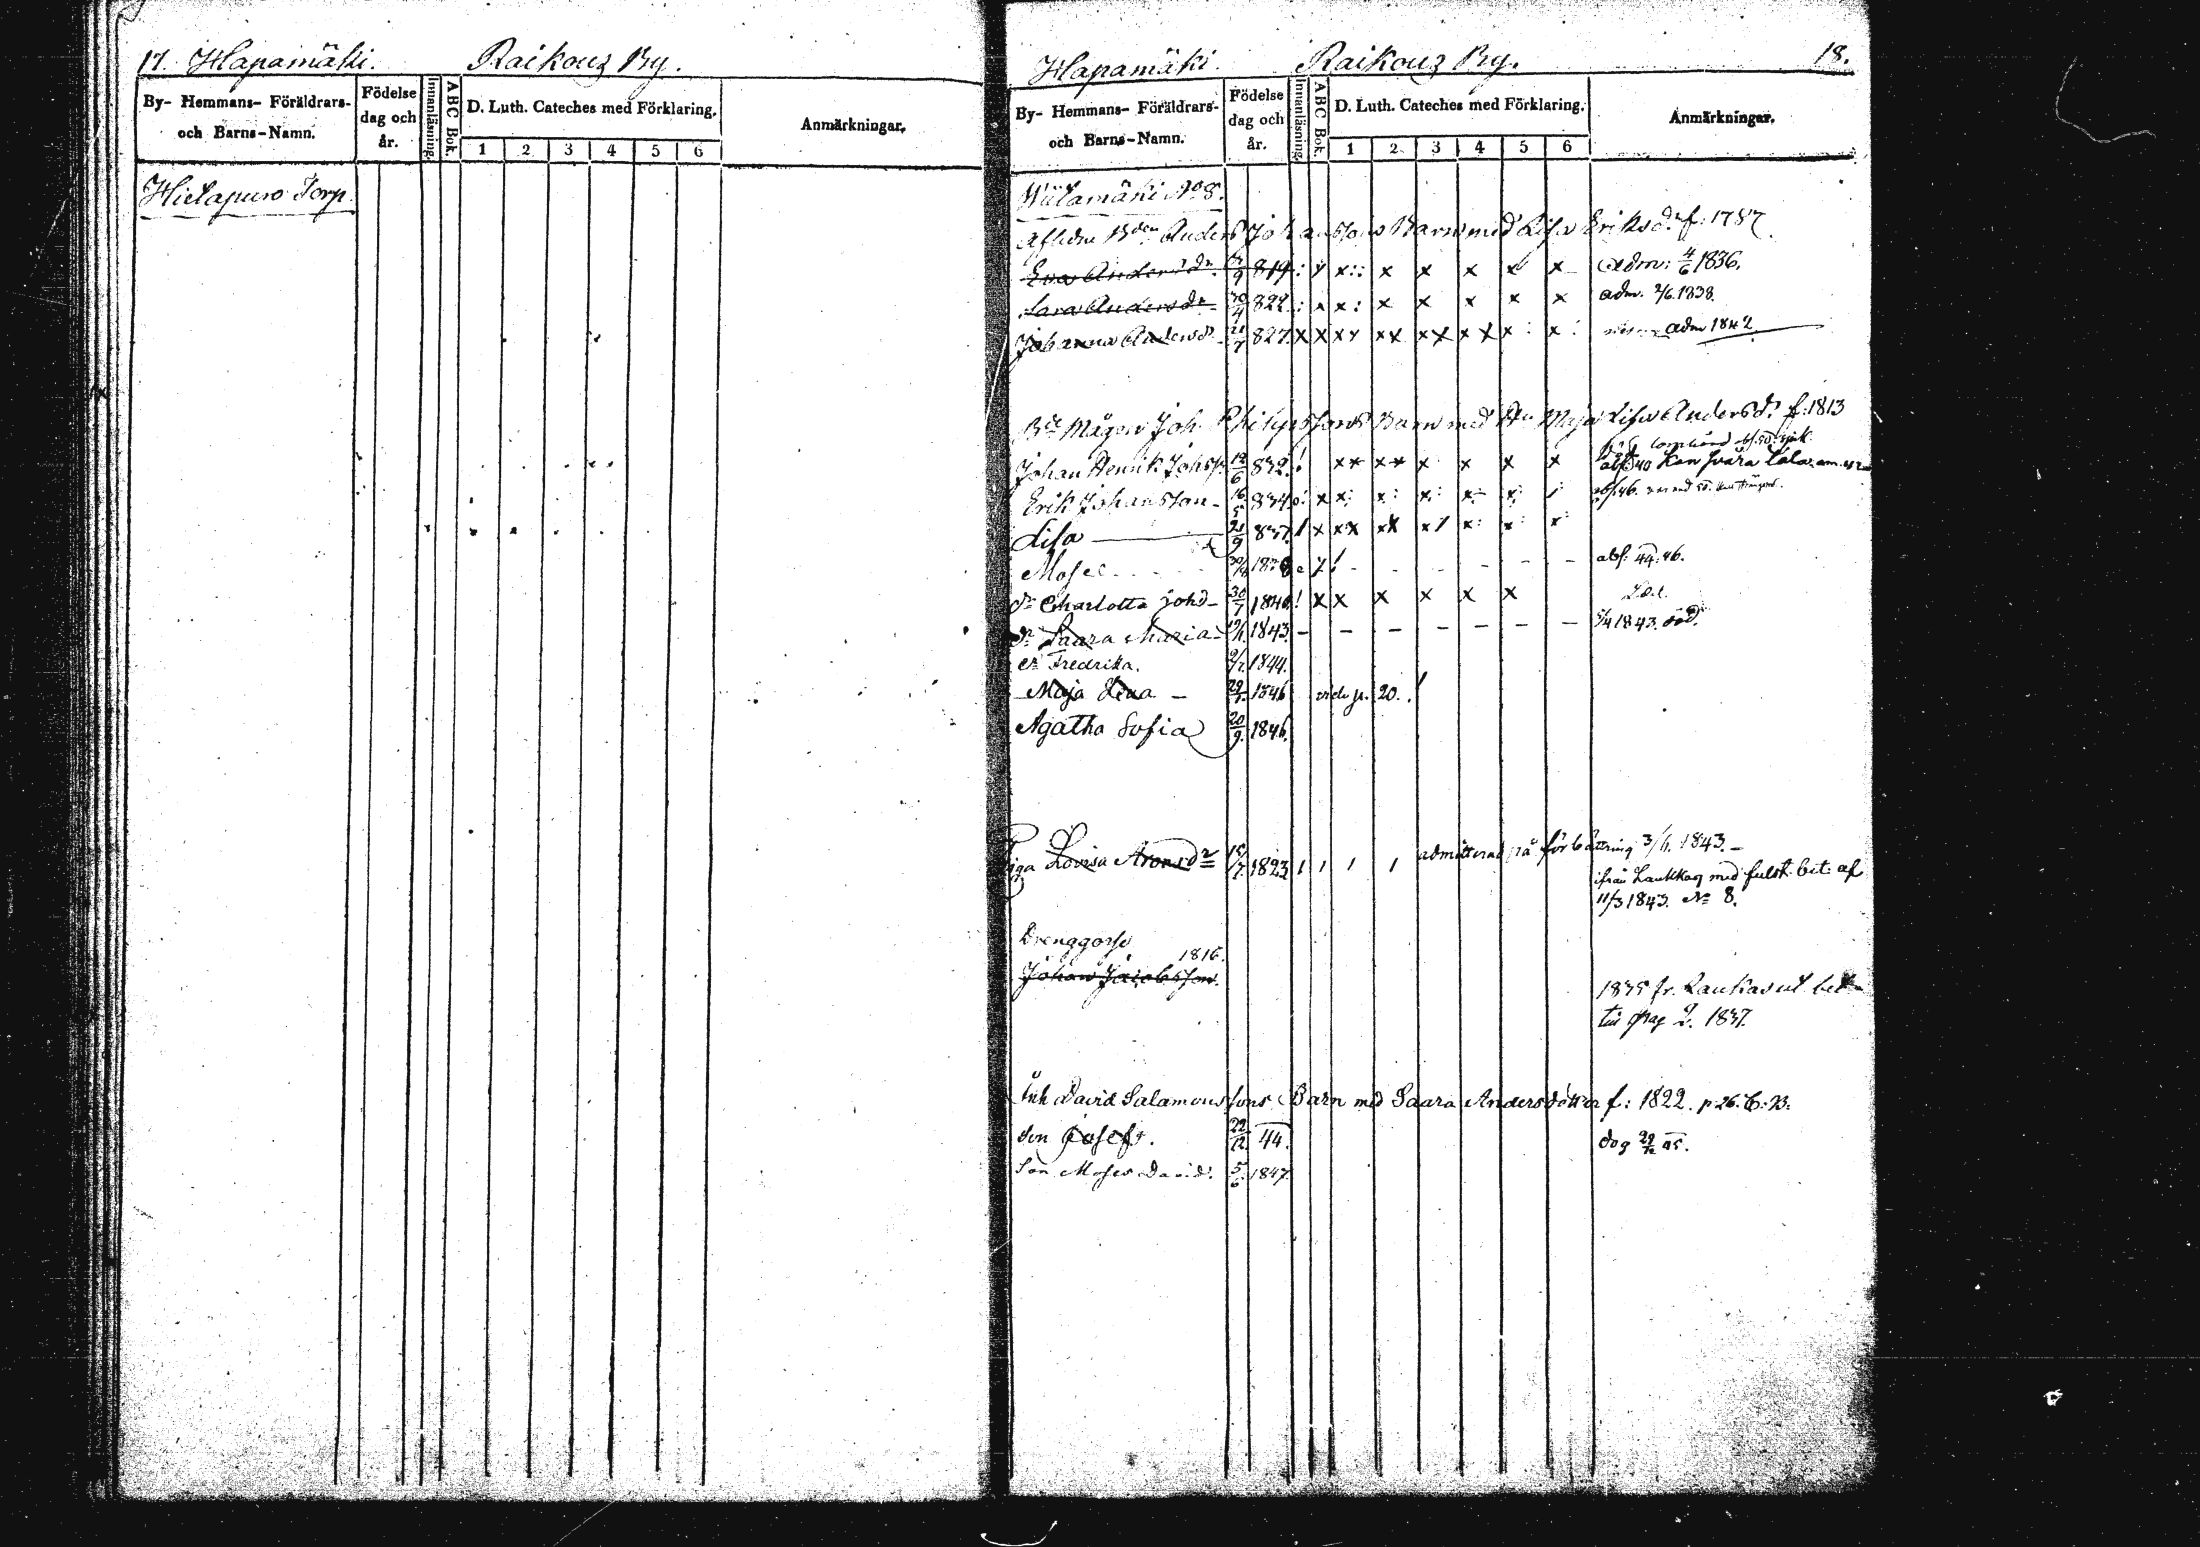 17. Hapamäki. Raikouz By.
By- Hemmans- Föräldrars- och Barns-Namn.
Födelse dag och år.
Innanläsning.
ABC Bok.
D. Luth. Cateches med Förklaring.
1 2 3 4 5 6
Anmärkningar.
Hietapuro Torp.
Hapamäki. Raikouz By. 18.
By- Hemmans- Föräldrars- och Barns-Namn.
Födelse dag och år.
Innanläsning.
ABC Bok.
D. Luth. Cateches med Förklaring.
1 2 3 4 5 6
Anmärkningar.
Niilamäki No 8.
Afledne Bden Anders Johanssons Barn med Lisa Eriksdr f: 1787
Eva Andersdr. 9 819 : x x:: x x x x x adm: 4/6 1836.
Sara Andersdr 30/4 822 : x x: x x x x x adm. 2/6 1838.
Johanna Andersdr 21/7 827. x x xx xx xx xx x: x: adm 1842
Mågen Joh. Philipssons Barn med Maja Lisa Andersdr f: 1813
Johan Henrik Johss. 12/6 832. ! xx xx x x x x abs. 40 kan svåra tala
Erik Johansson - 16/5 834 x x: x: x: x: x: abs. 46.
Lisa 21/9 837. / x xx xx x/ x: x: x:
Moses - - - abs: 44. 46.
dr Charlotta Johd- 30/7 1840. ! x x x x x x
dr Saara Maria- 1843. - - - - - - - 5/4 1843. död.
dr Fredrika. 1844.
Maja Lena - 29 1846 vide p. 20.
Agatha Sofia 20/9. 1846.
Piga Lovisa Aronsdr 15/7. 1823 1 1 1 1 admitterad på förbättring 3/6. 1843. -
ifrån Laukkas med fulst. bet: af
11/3 1843. No 8.
Drenggosse
1816.
Johan Jacobsson.
1835 fr. Laukas ut
till pag 2. 1837.
Inh David Salamonssons Barn med Saara Andersdotter f: 1822. p. 26.
Son Josef. 22/12 44. dog
Son Moses David. 5/6 1847.